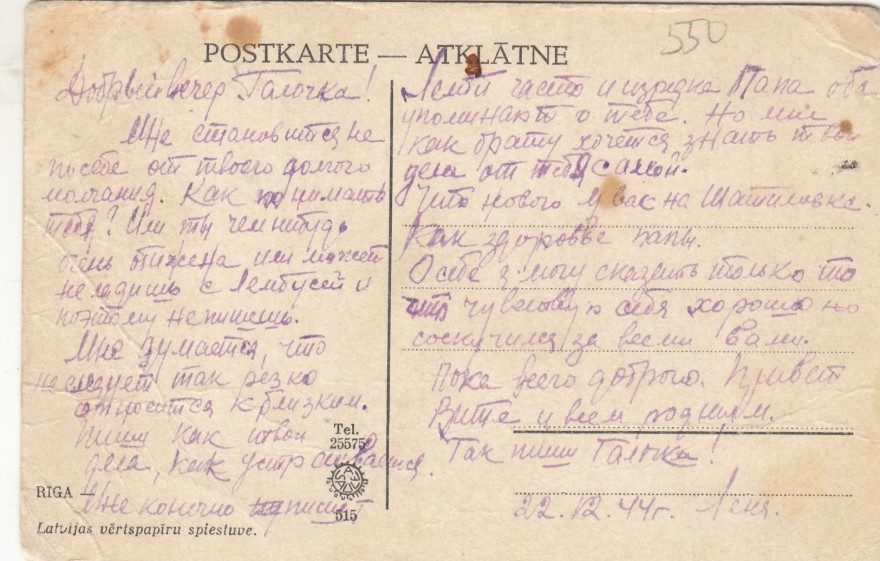 550
POSTKARTE — ATKLĀTNE
Добрый вечер Галочка!
Мне становится не
по себе от твоего долгого
молчания. Как понимать
тебя? Или ты чем нибудь
очень
или может
не ладишь с Лембусей и
поэтому не пишешь.
Мне думается, что
не следует так резко
относится к близким.
Пиши как твои
дела, как устраивается
Мне конечно пишет
Лемби часто и изредка Папа оба
упоминают о тебе. Но мне
как брату хочется знать твои
дела от тебя самой.
Что нового у вас на Шатиловке.
Как здоровье папы.
О себе я могу сказать только то
что чувствую себя хорошо но
соскучился за всеми вами.
Пока всего доброго. Привет
Вите и всем родным.
Так пиши Галочка!
22.12.44г. Леня.
Tel.
25575
RĪGA —
515
Latvijas vērtspapīru spiestuve.